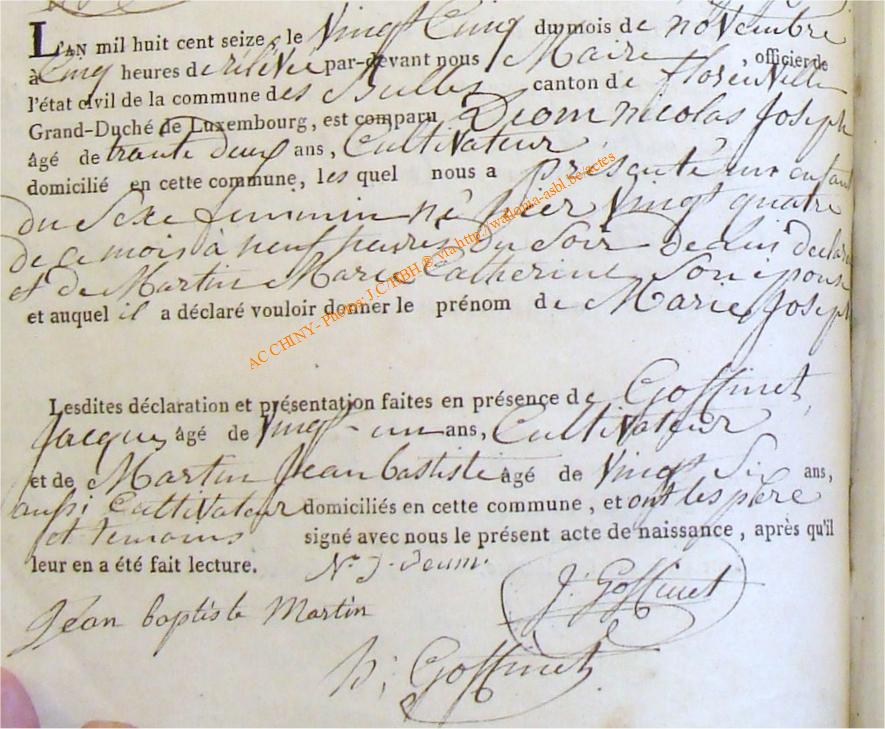 L'AN mil huit cent seize, le Vingt Cinq du mois de novembre
à Cinq heures de rélévé par-devant nous Maire, officier de
l'état civil de la commune des Bulles canton de florenville
Grand-Duché de Luxembourg, est comparu Diom nicolas Joseph
âgé de trante deux ans, Cultivateur
domicilié en cette commune, lesquel nous a présenté un enfant
du Sexe femminin né hier Vingt quatre
de ce mois à neuf heures du Soir de lui déclarant
et de Martin Marie Catherine Son épouse
et auquel il a déclaré vouloir donner le prénom de Marie Joseph
AC CHINY - Photos J.C/HBH © via http://wallonia-asbl.be/actes
Lesdites déclaration et présentation faites en présence de Goffinet
Jacques âgé de Vingt-un ans, Cultivateur
et de Martin Jean bastiste âgé de Vingt Si ans,
aussi Cultivateur domiciliés en cette commune, et ont les père
et temoins signé avec nous le présent acte de naissance, après qu'il
leur en a été fait lecture. N. J. deum
J. Goffinet
Jean baptiste Martin
h; Goffinet